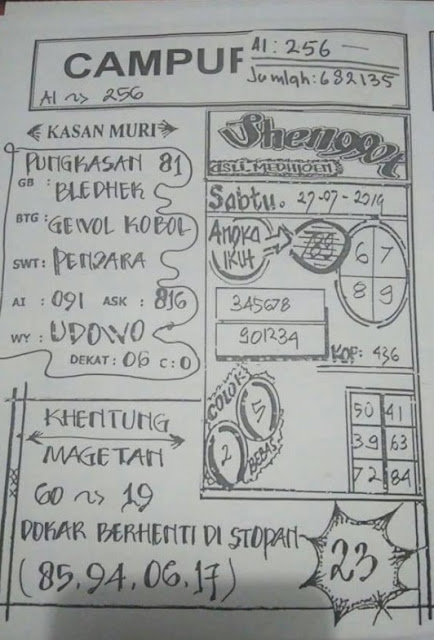 CAMPUR
AI : 256
Jumlah : 682135
AI ~> 256
KASAN MURI
PUNGKASAN 81
GB : BLEDHEK
BTG : GEWOL KOBOL
SWT : PENJARA
AI : 091 ASK : 816
WY : UDOWO
DEKAT : 06 C : 0
Shenggot
ASLI MEDHIOEN
Sabtu. 27-07-2019
ANGKA
IKUT
789
6 7
8 9
345678
901234
KOP : 436
COLOK
5
2
BEBAS
50 41
39 63
72 84
KHENTUNG
MAGETAN
60 ~> 19
DOKAR BERHENTI DI STOPAN
(85, 94, 06, 17)
23